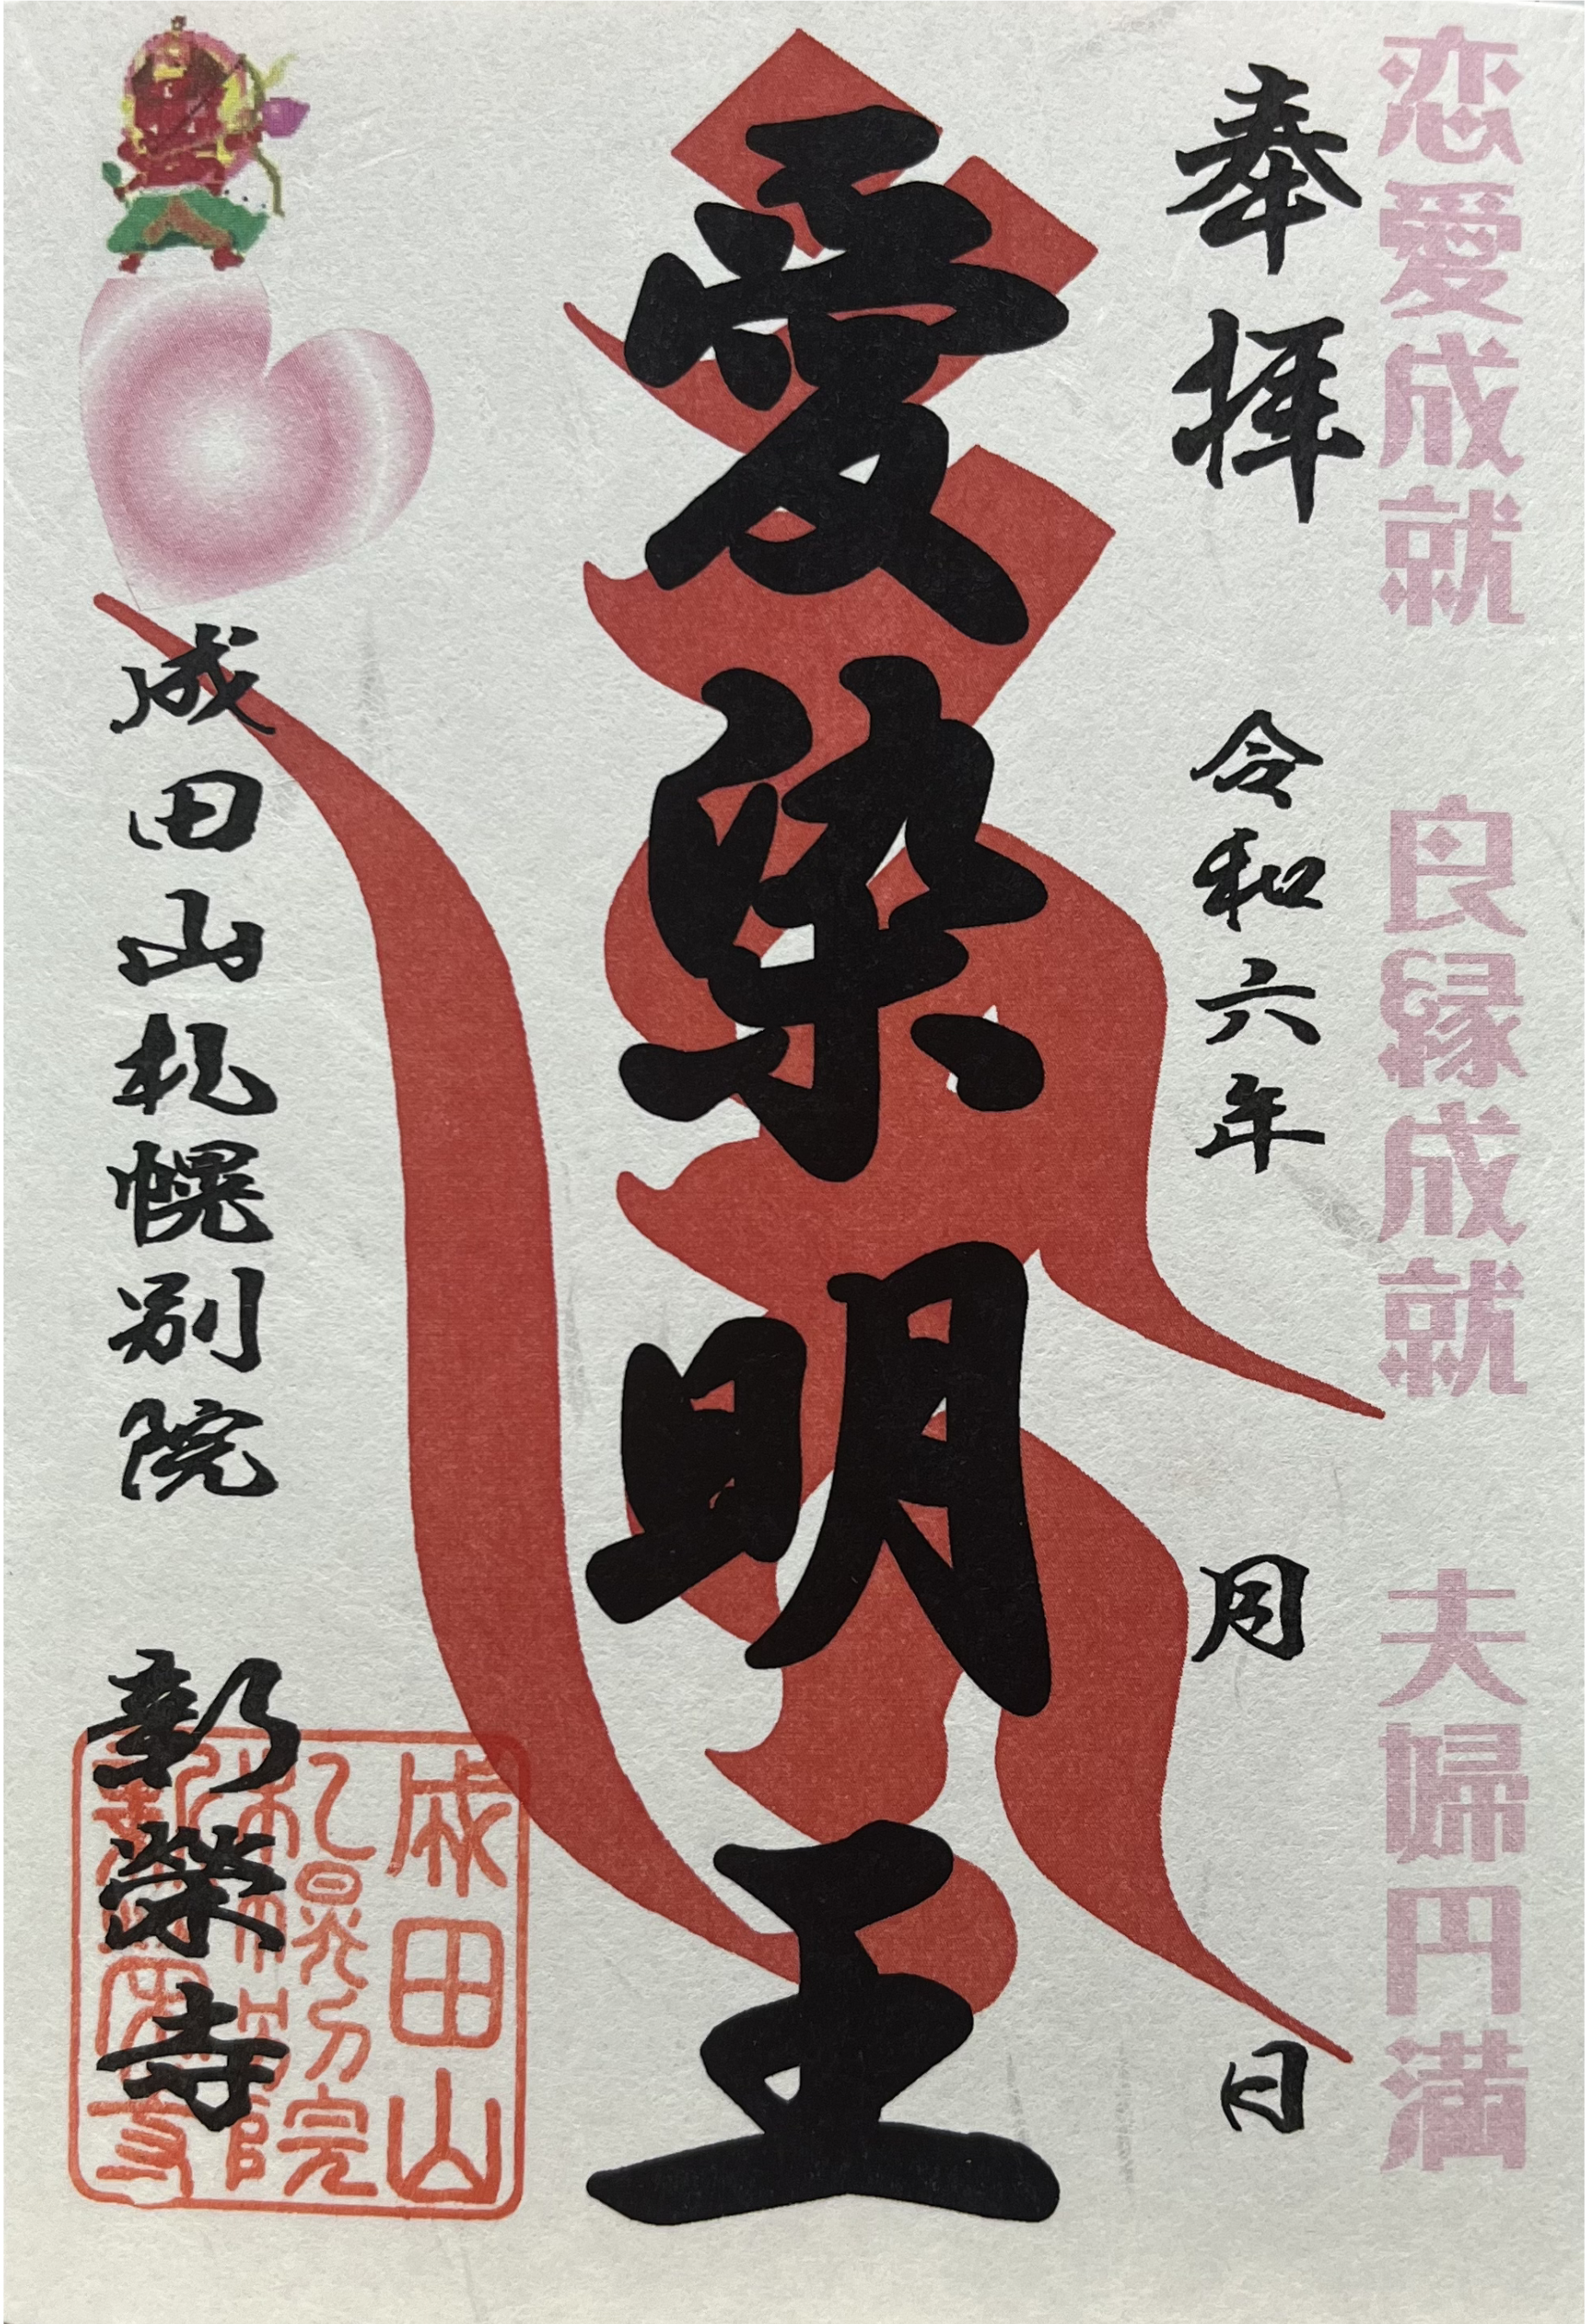 恋愛成就　良縁成就　夫婦円満
奉拝　令和六年　月　日
愛染明王
成田山札幌別院　新榮寺
成田山
札幌別院